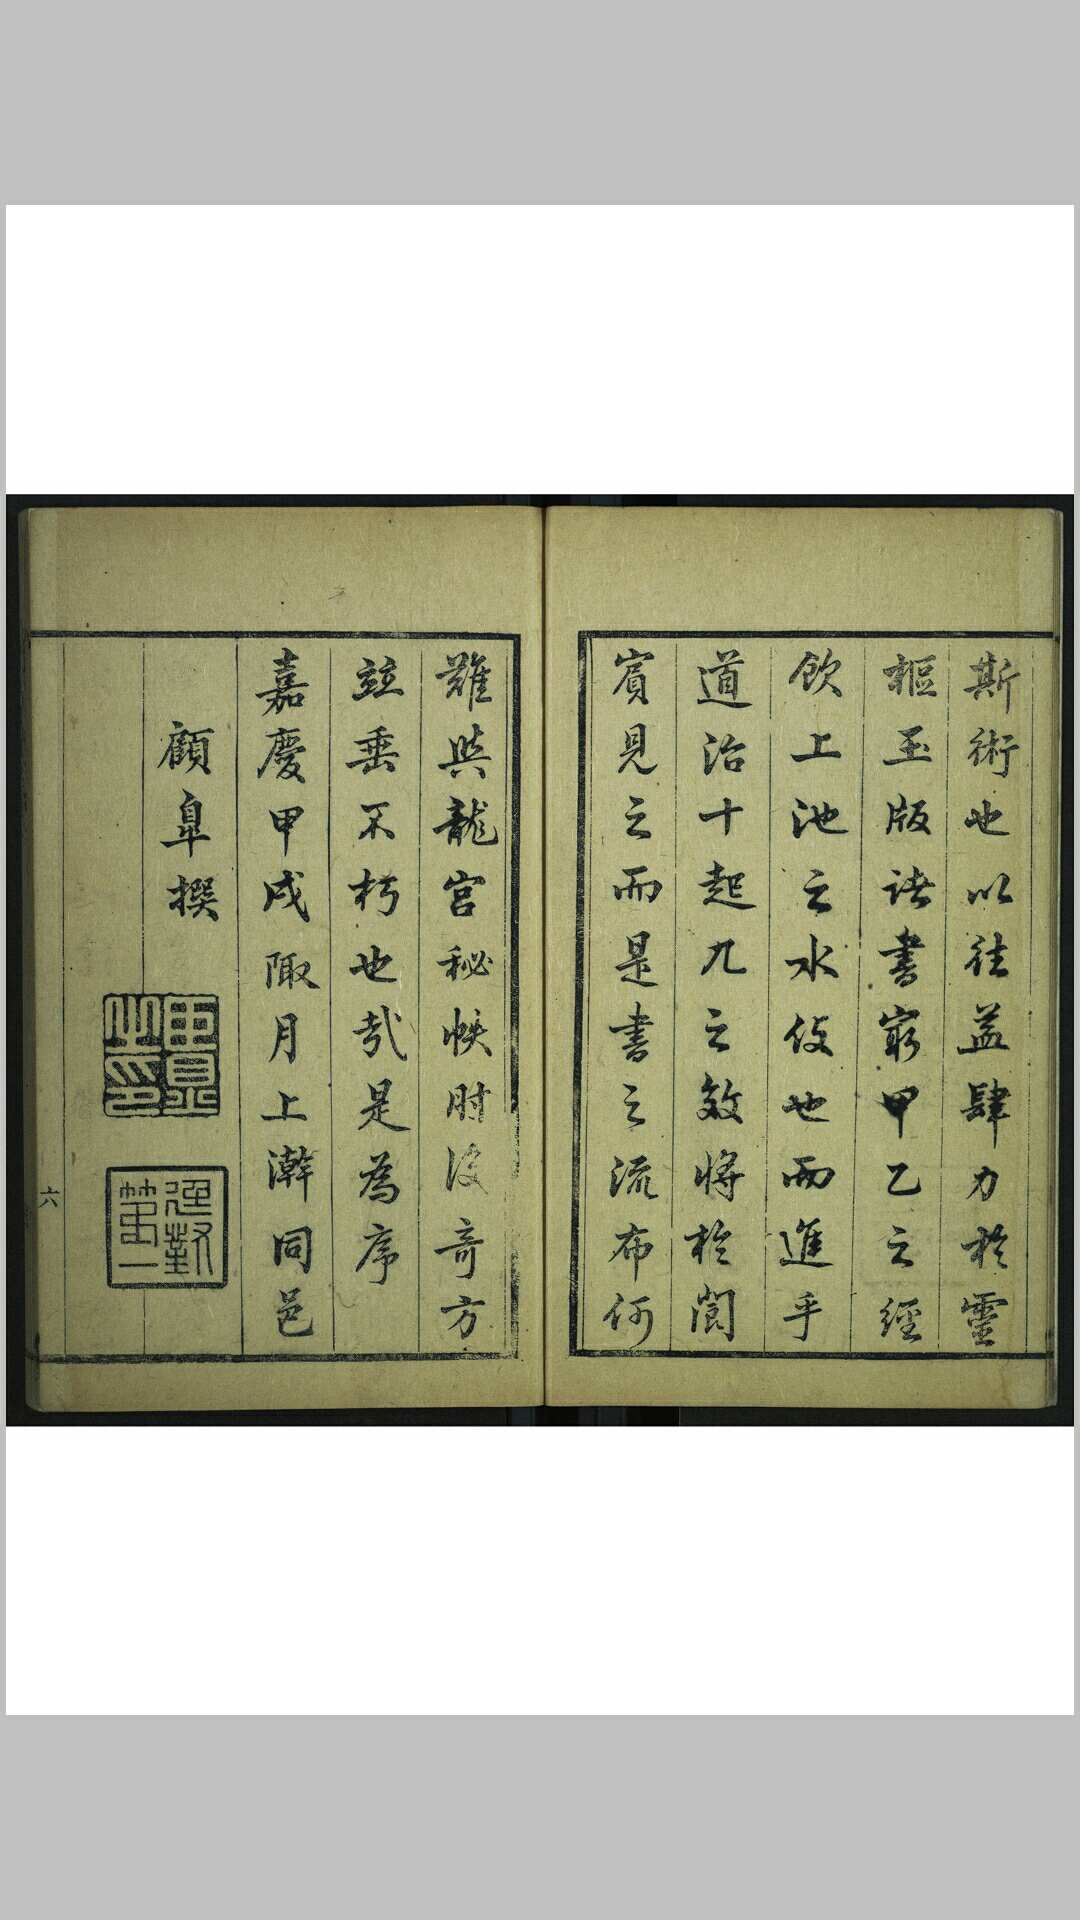 斯術也以往益肆力於靈
樞玉版諸書窮甲乙之經
飲上池之水伎也而進乎
道治十起九之效將於閬
賔見之而是書之流布何
難與龍宮秘帙肘後奇方
竝垂不朽也哉是為序
嘉慶甲戌陬月上澣同邑
顧皋撰
臣皋之印
廷對第一
六